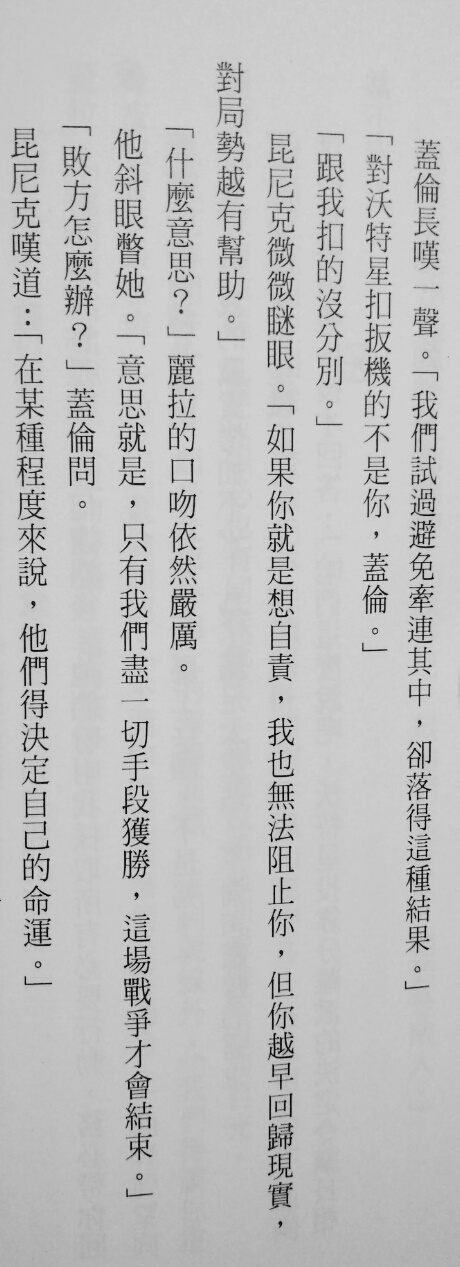 蓋倫長嘆一聲。「我們試過避免牽連其中，卻落得這種結果。」
「對沃特星扣扳機的不是你，蓋倫。」
「跟我扣的沒分別。」
昆尼克微微瞇眼。「如果你就是想自責，我也無法阻止你，但你越早回歸現實，
對局勢越有幫助。」
「什麼意思？」麗拉的口吻依然嚴厲。
他斜眼瞥她。「意思就是，只有我們盡一切手段獲勝，這場戰爭才會結束。」
「敗方怎麼辦？」蓋倫問。
昆尼克嘆道：「在某種程度來說，他們得決定自己的命運。」